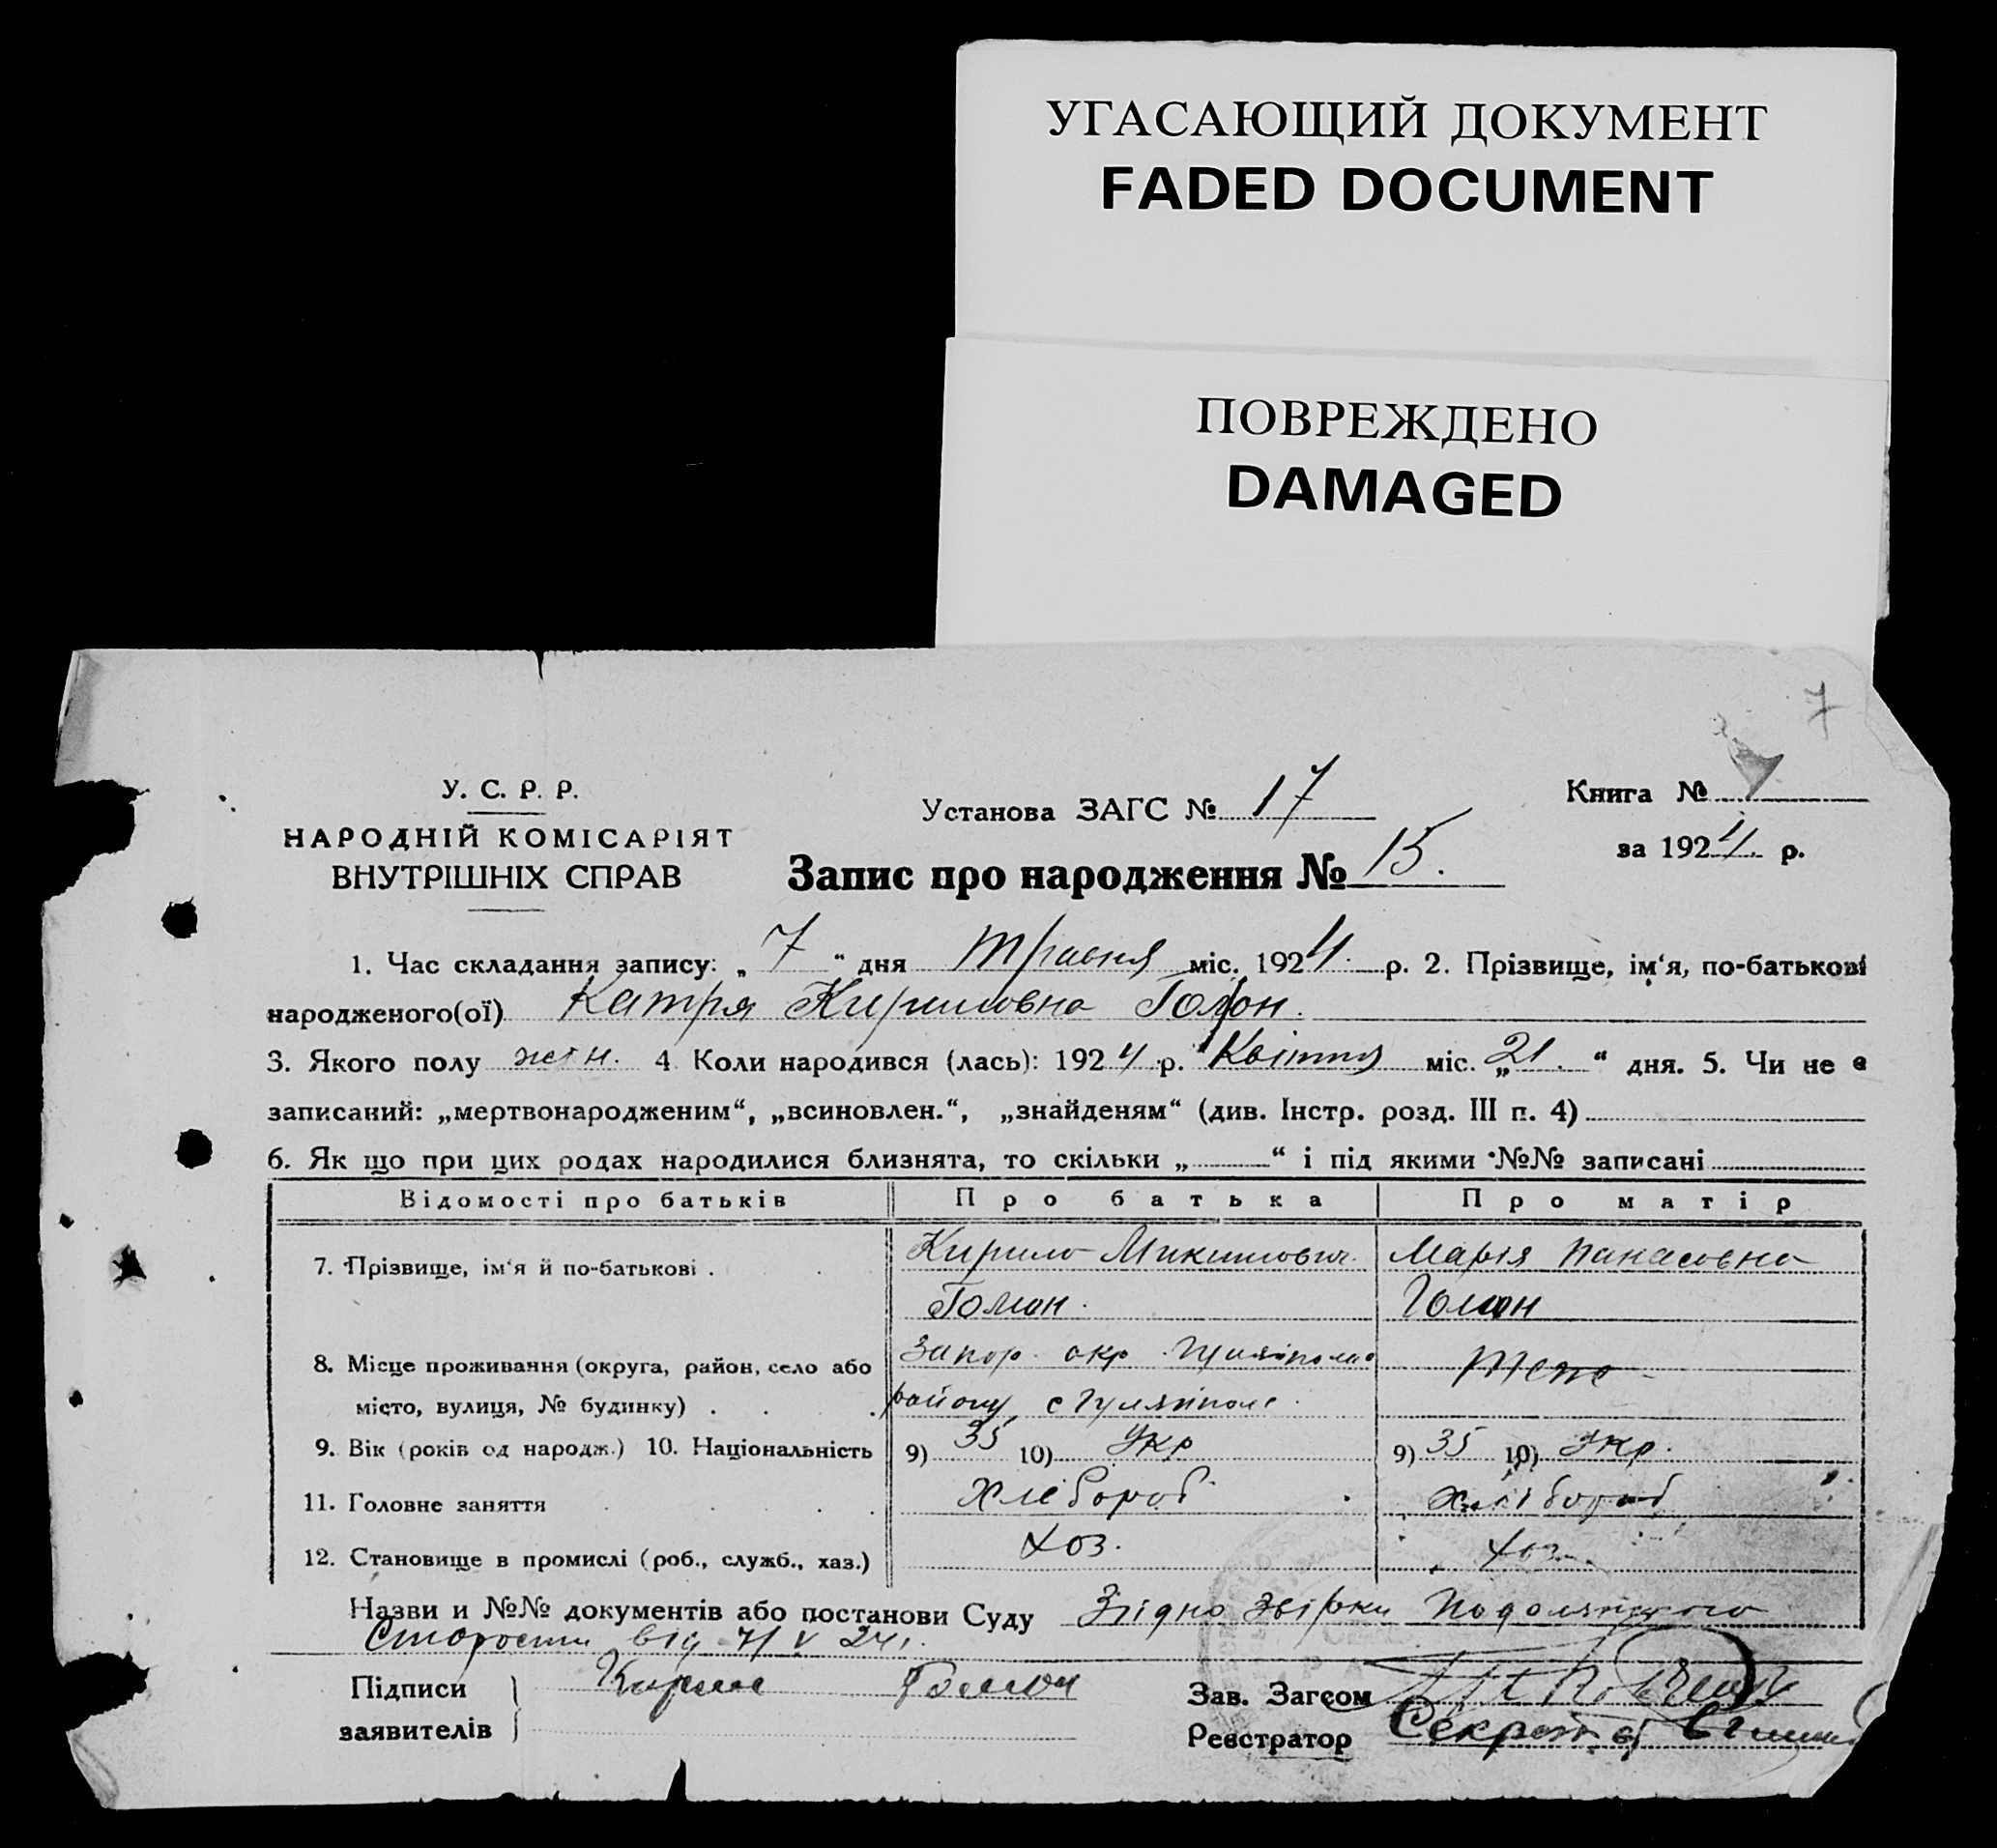 УГАСАЮЩИЙ ДОКУМЕНТ
FADED DOCUMENT
ПОВРЕЖДЕНО
DAMAGED
7
У. С. Р. Р.
НАРОДНІЙ КОМІСАРІЯТ
ВНУТРІШНІХ СПРАВ
Установа ЗАГС № 17
Книга №
за 1924 р.
Запис про народження № 15.
1. Час складання запису: „ 7 “ дня Травня міс. 1924. р. 2. Прізвище, ім‘я, по-батькові
народженого(ої) Катря Кириловна
3. Якого полу жен. 4. Коли народився (лась): 1924 р. Квітня міс. „ 21. “ дня. 5. Чи не є
записаний: „мертвонародженим“, „всиновлен.“, „знайденям“ (див. Інстр. розд. III п. 4)
6. Як що при цих родах народилися близнята, то скільки „ “ і під якими №№ записані
Відомості про батьків Про батька Про матір
7. Прізвище, ім‘я й по-батькові . . Кирило Микитович. Марія Панасовна
Гомон. Гомон
8. Місце проживання (округа, район, село або Запор. окр. Гуляйпольс Теж
місто, вулиця, № будинку) . . . району с Гуляйполе.
9. Вік (років од народж.) 10. Національність 9) 35 10) Укр 9) 35 10) Укр.
11. Головне заняття . . . . Хлебороб. Хлібороб
12. Становище в промислі (роб., служб., хаз.) Хоз. Хоз.
Назви и №№ документів або постанови Суду Згідно звірки Подолянского
Старости від 7/V 24 г.
Підписи Кирило Гомон
заявителів
Зав. Загсом
Реєстратор Секрет.